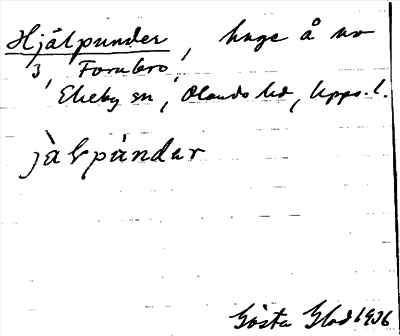 Hjälpunder, hage å no
3, Fornbro,
Ekeby sn, Olands hd, Upps. l.
jàlpándər
Gösta Glad 1906